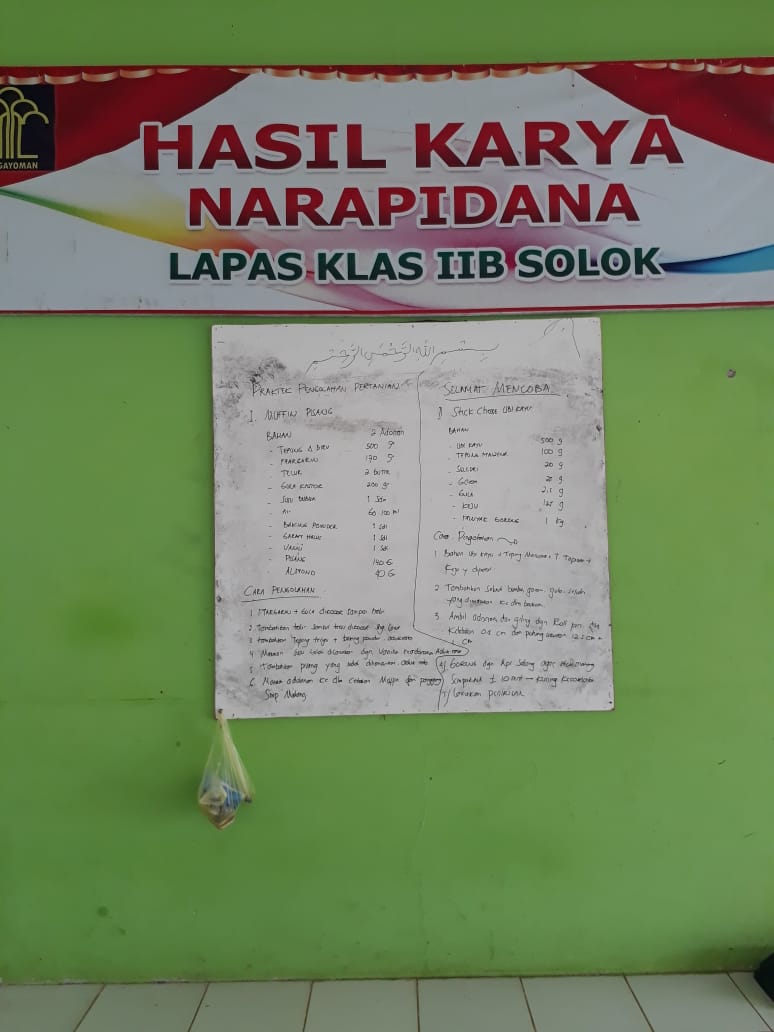 GAYOMAN
HASIL KARYA
NARAPIDANA
LAPAS KLAS IIB SOLOK
بسم الله الرحمن الرحيم
PRAKTEK PENGOLAHAN PERTANIAN
I. MUFFIN PISANG
BAHAN 2 Adonan
- TEPUNG Δ BIRU 500 gr
- MARGARIN 170 gr
- TELUR 2 butir
- GULA KASTOR 200 gr
- SUSU BUBUK 1 Sdm
- Air 60-100 ml
- BAKING POWDER 1 Sdt
- GARAM HALUS 1 Sdt
- VANILI 1 Sdt
- PISANG 140 G
- ALMOND 40 G
CARA PENGOLAHAN
1. MARGARIN + GULA dikocok sampai
2. Tambahkan telur sambil terus dikocok
3. tambahkan Tepung terigu + baking powder
4. susu bubuk dan Vanila
5. Tambahkan pisang yang sudah
6. Masukan adonan ke dlm Cetakan dan panggang
Siap Matang
SELAMAT MENCOBA
1) Stick Cheese UBI KAYU
BAHAN
- UBI KAYU 500 g
- TEPUNG MAIZENA 100 g
- SELEDRI 20 g
- GARAM g
- GULA 2,5 g
- KEJU 125 g
- MINYAK GORENG 1 Kg
Cara Pengolahan
1. Bahan Ubi kayu + Tepung Maizena + Tapioka +
Keju y diparut
2. Tambahkan garam, gula,
yang ke dlm
3. Ambil adonan dan giling dgn Roll pin, dgn
Ketebalan 0,5 cm dan potong ukuran
cm
4) GORENG dgn Api Sedang agar
± 10 mnt → Kuning Keemasan
5) Lakukan